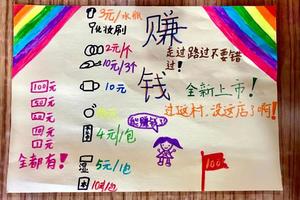 3元/水瓶
化妆刷
2元/个
10元/3个
10元
4元/1包
5元/1包
10元/1包
100元
50元
20元
10元
5元
1元
全都有!
赚
钱
走过路过不要错
过!
全新上市!
过这村,没这店了啊!
能赚钱!
100